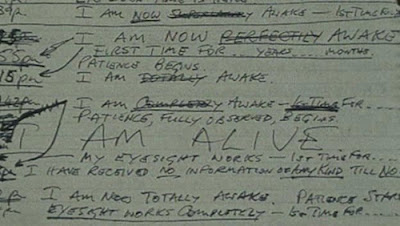 I AM NOW AWAKE — 1ST TIME FOR..
I AM NOW PERFECTLY AWAKE
FIRST TIME FOR .... YEARS .... MONTHS.
PATIENCE BEGINS.
15pm I AM TOTALLY AWAKE.
I AM COMPLETELY AWAKE — 1st TIME FOR....
PATIENCE, FULLY OBSERVED, BEGINS
I AM ALIVE
— MY EYESIGHT WORKS — 1ST TIME FOR.....
I HAVE RECEIVED NO INFORMATION OF ANY KIND TILL NO
I AM NOW TOTALLY AWAKE. PATIENCE STAR
EYESIGHT WORKS COMPLETELY — 1st TIME FOR....